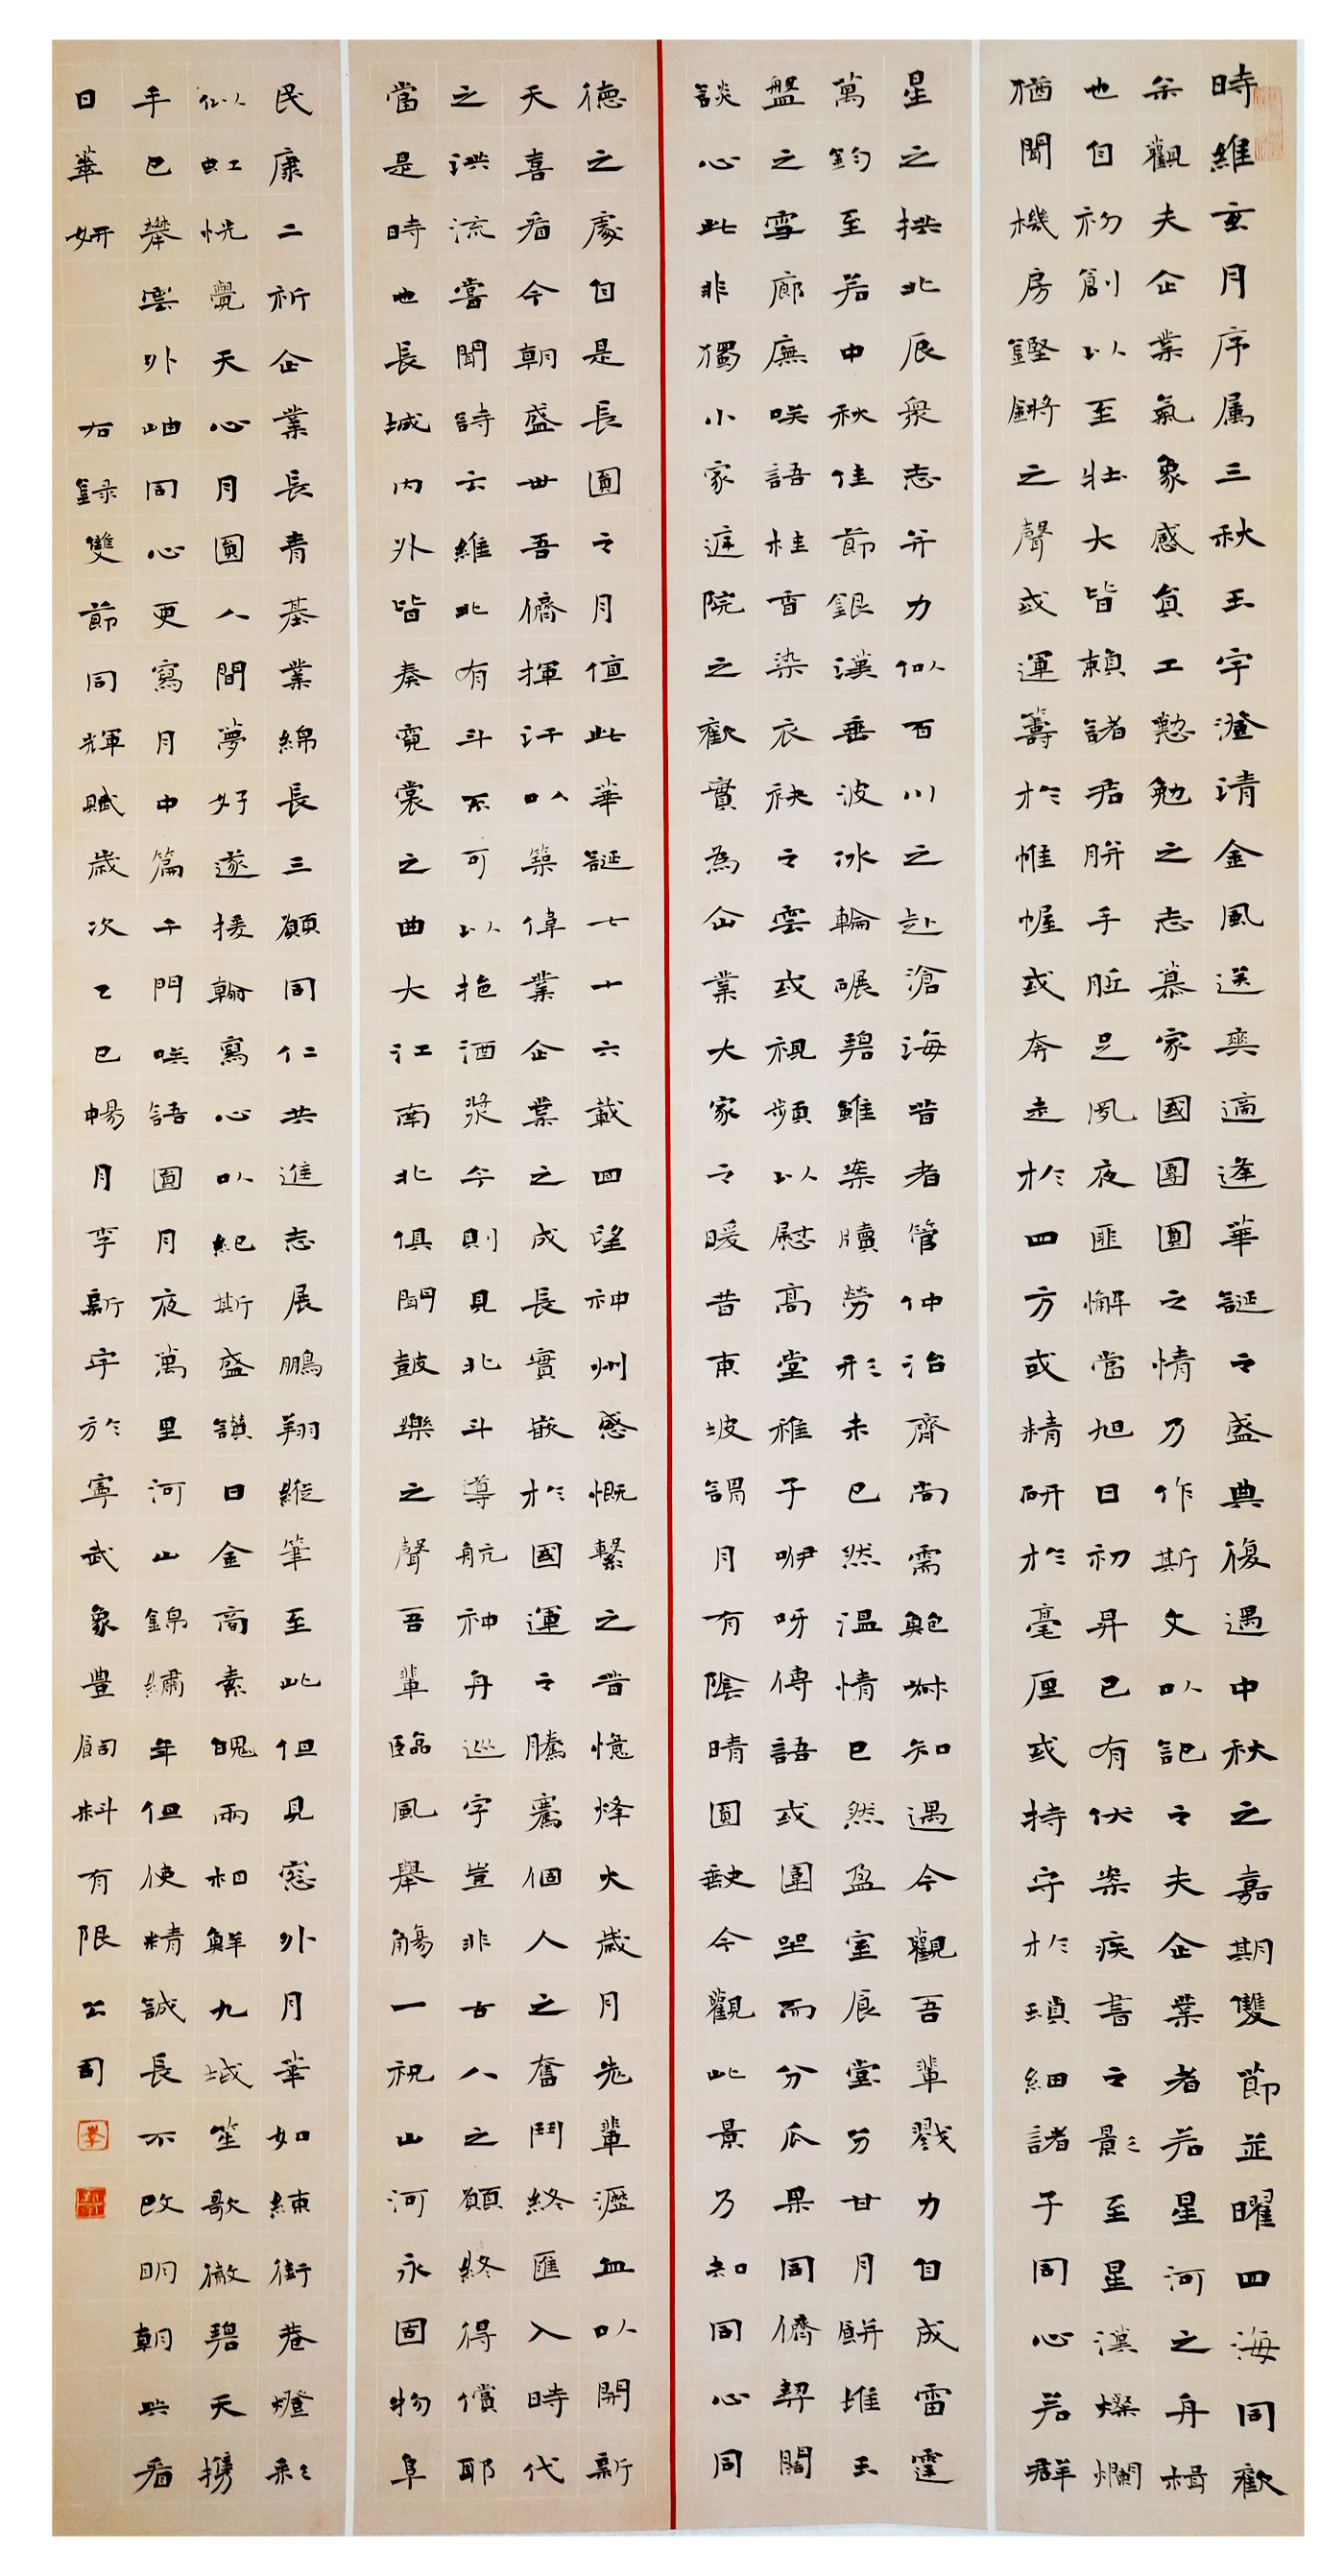 時維玄月序属三秋玉宇澄清金風送爽適逢華誕之盛典復遇中秋之嘉期雙節並曜四海同歡
余觀夫企業氣象感員工懃勉之志慕家國團圓之情乃作斯文以記之夫企業者若星河之舟楫
也自初創以至壯大皆賴諸君胼手胝足夙夜匪懈當旭日初昇已有伏案疾書之影至星漢燦爛
猶聞機房鏗鏘之聲或運籌於帷幄或奔走於四方或精研於毫厘或持守於瑣細諸子同心若群
星之拱北辰衆志并力似百川之赴滄海昔者管仲治齊尚需鮑叔知遇今觀吾輩戮力自成雷霆
萬鈞至若中秋佳節銀漢垂波冰輪碾碧雖案牘勞形未已然溫情已然盈室食堂分甘月餅堆玉
盤之雪廊廡咲語桂香染衣袂之雲或視頻以慰高堂稚子咿呀傳語或圍坐而分瓜果同儕契闊
談心此非獨小家庭院之歡實為企業大家之暖昔東坡謂月有陰晴圓缺今觀此景乃知同心同
德之處自是長圓之月值此華誕七十六載四望神州感慨繫之昔憶烽火歲月先輩瀝血以開新
天喜看今朝盛世吾儕揮汗以築偉業企業之成長實嵌於國運之騰騫個人之奮鬥終匯入時代
之洪流嘗聞詩云維北有斗不可以挹酒漿今則見北斗導航神舟巡宇豈非古人之願終得償耶
當是時也長城内外皆奏霓裳之曲大江南北俱聞鼓樂之聲吾輩臨風舉觴一祝山河永固物阜
民康二祈企業長青基業綿長三願同仁共進志展鵬翔縱筆至此但見窓外月華如練街巷燈彩
似虹恍覺天心月圓人間夢好遂援翰寫心以紀斯盛讚曰金商素魄兩相鮮九域笙歌徹碧天携
手已攀雲外岫同心更寫月中篇千門咲語圓月夜萬里河山錦繡年但使精誠長不改明朝共看
日華妍
右録雙節同輝賦歲次乙巳暢月李新宇於寧武象豊飼料有限公司